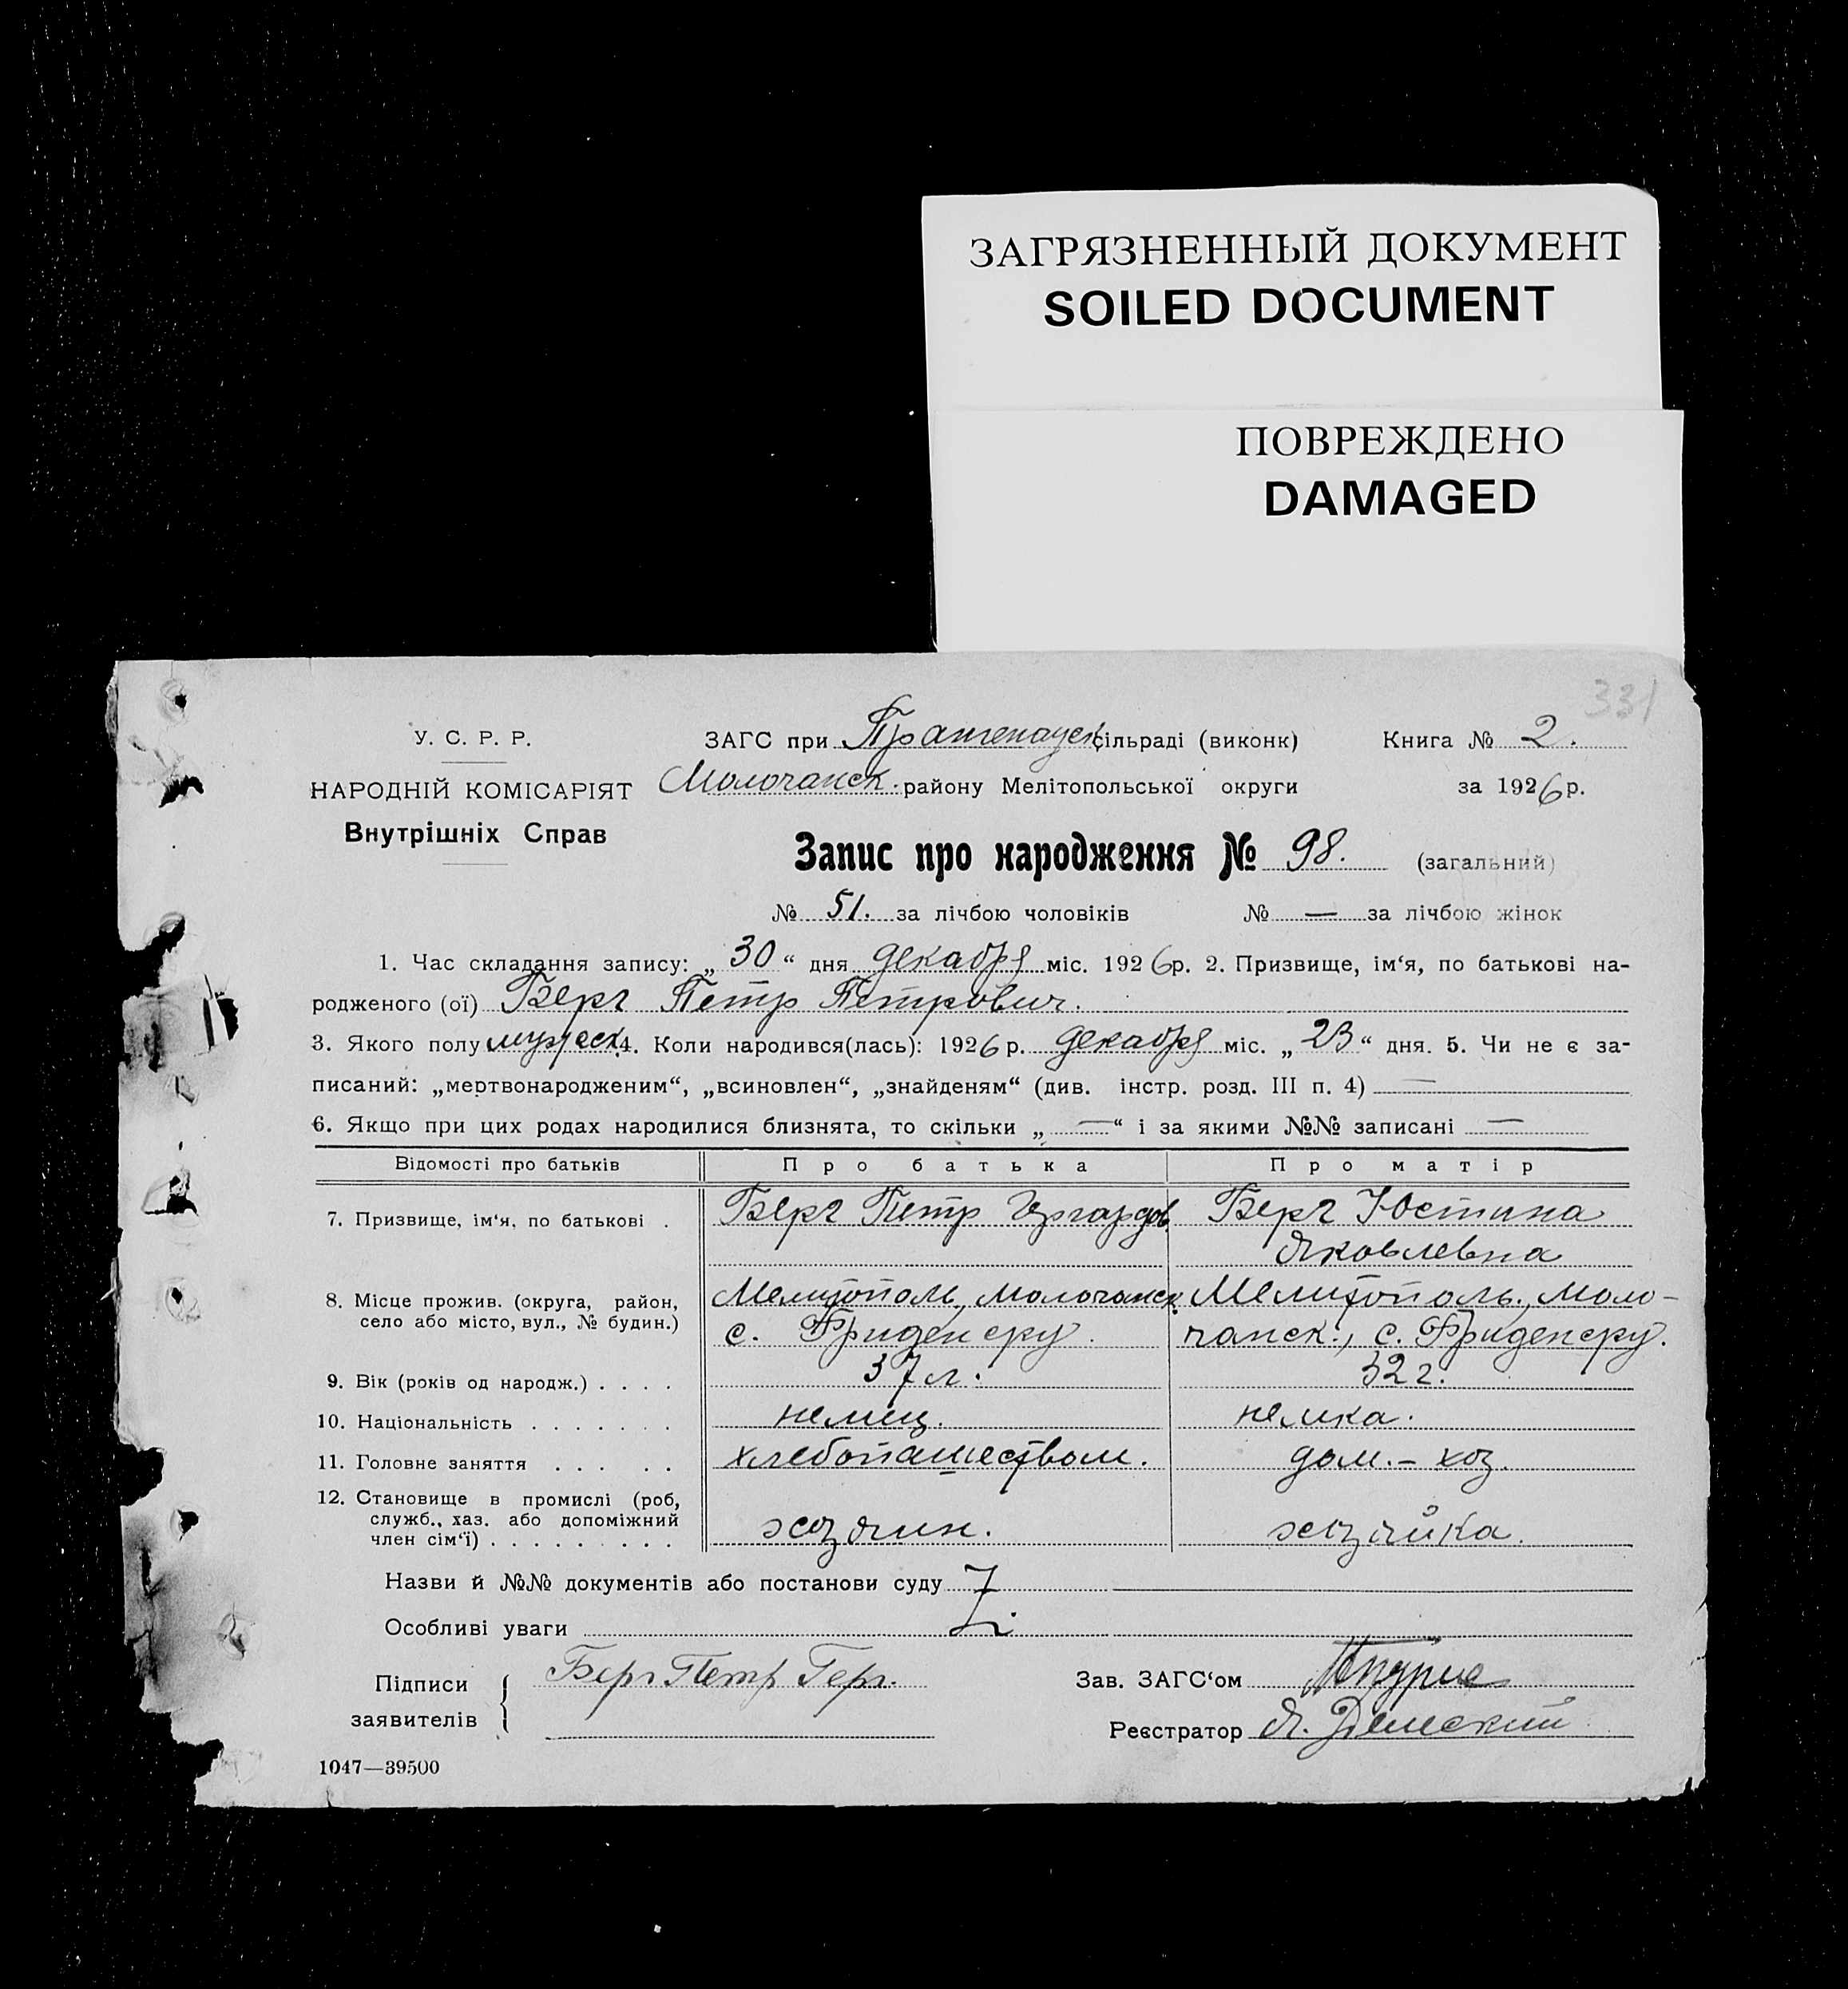 ЗАГРЯЗНЕННЫЙ ДОКУМЕНТ
SOILED DOCUMENT
ПОВРЕЖДЕНО
DAMAGED
331
У. С. Р. Р.
ЗАГС при Прангенауск. сільраді (виконк)
Книга № 2.
НАРОДНІЙ КОМІСАРІЯТ
Молочанск. району Мелітопольської округи
за 1926 р.
Внутрішніх Справ
Запис про народження № 98. (загальний)
№ 51. за лічбою чоловіків № — за лічбою жінок
1. Час складання запису: „ 30 “ дня декабря міс. 1926 р. 2. Призвище, ім‘я, по батькові на-
родженого (ої) Берг Петр Петрович.
3. Якого полу мужеск. 4. Коли народився(лась): 1926 р. декабря міс. „ 23 “ дня. 5. Чи не є за-
писаний: „мертвонародженим“, „всиновлен“, „знайденям“ (див. інстр. розд. III п. 4) —
6. Якщо при цих родах народилися близнята, то скільки „ — “ і за якими №№ записані —
Відомості про батьків Про батька Про матір
7. Призвище, ім‘я, по батькові . Берг Петр Гергардов. Берг Юстина
Яковлевна
8. Місце прожив. (округа, район, Мелитополь., Молочанск. Мелитополь., Моло-
село або місто, вул., № будин.) с. Фриденсру. чанск., с. Фриденсру.
9. Вік (років од народж.) . . . . 37 л. 32 г.
10. Національність . . . . . . . немец. немка.
11. Головне заняття . . . . . хлебопашеством. дом.- хоз.
12. Становище в промислі (роб,
служб., хаз. або допоміжний
член сім‘ї) . . . . . . . . . хозяин. хозяйка.
Назви й №№ документів або постанови суду
Особливі уваги
Підписи Берг Петр Герг. Зав. ЗАГС‘ом
заявителів
Реєстратор Я.
1047—39500